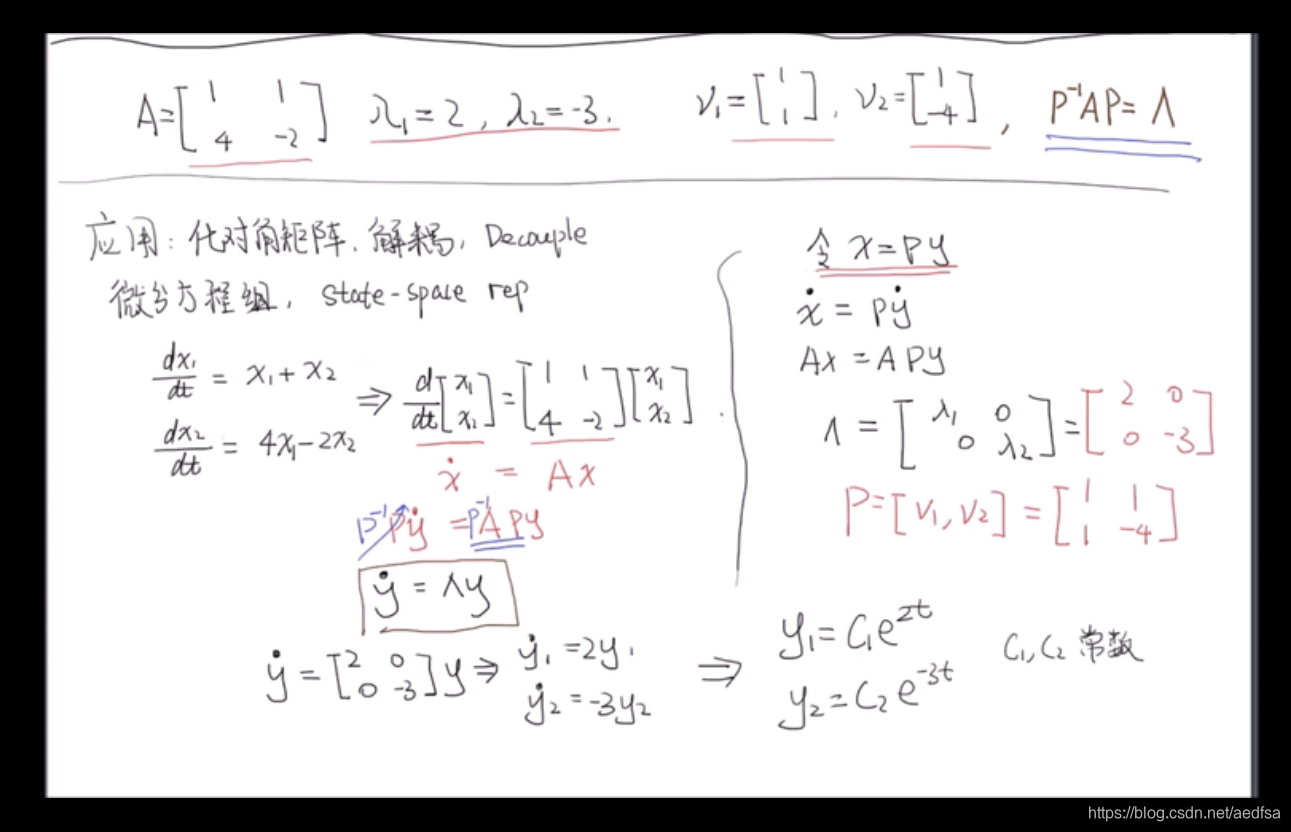 A=[1 1; 4 -2] λ₁=2, λ₂=-3. v₁=[1; 1], v₂=[1; -4], P⁻¹AP=Λ
应用:化对角矩阵,解耦,Decouple
微分方程组,state-space rep
dx₁/dt = x₁+x₂
dx₂/dt = 4x₁-2x₂
⇒ d/dt[x₁; x₂]=[1 1; 4 -2][x₁; x₂].
ẋ = Ax
P⁻¹Pẏ =P⁻¹APy
ẏ = Λy
ẏ=[2 0; 0 -3]y ⇒ ẏ₁=2y₁
ẏ₂=-3y₂
令 x=Py
ẋ = Pẏ
Ax = APy
Λ = [λ₁ 0; 0 λ₂]=[2 0; 0 -3]
P=[v₁,v₂]=[1 1; 1 -4]
⇒ y₁=C₁e^{2t}
y₂=C₂e^{-3t}
C₁,C₂常数
https://blog.csdn.net/aedfsa